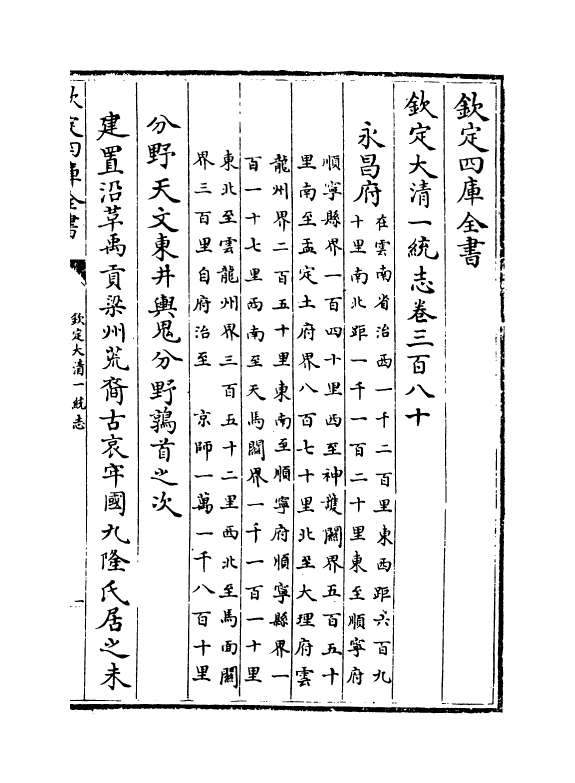 欽定四庫全書
欽定大清一統志卷三百八十
永昌府
在雲南省治西一千二百里東西距六百九
十里南北距一千一百二十里東至順寧府
順寧縣界一百四十里西至神護關界五百五十
里南至孟定土府界八百七十里北至大理府雲
龍州界二百五十里東南至順寧府順寧縣界一
百一十七里西南至天馬關界一千一百一十里
東北至雲龍州界三百五十二里西北至馬面關
界三百里自府治至 京師一萬一千八百十里
分野天文東井輿鬼分野鶉首之次
建置沿革禹貢梁州荒裔古哀牢國九隆氏居之未
欽定四庫全書
欽定大清一統志
一